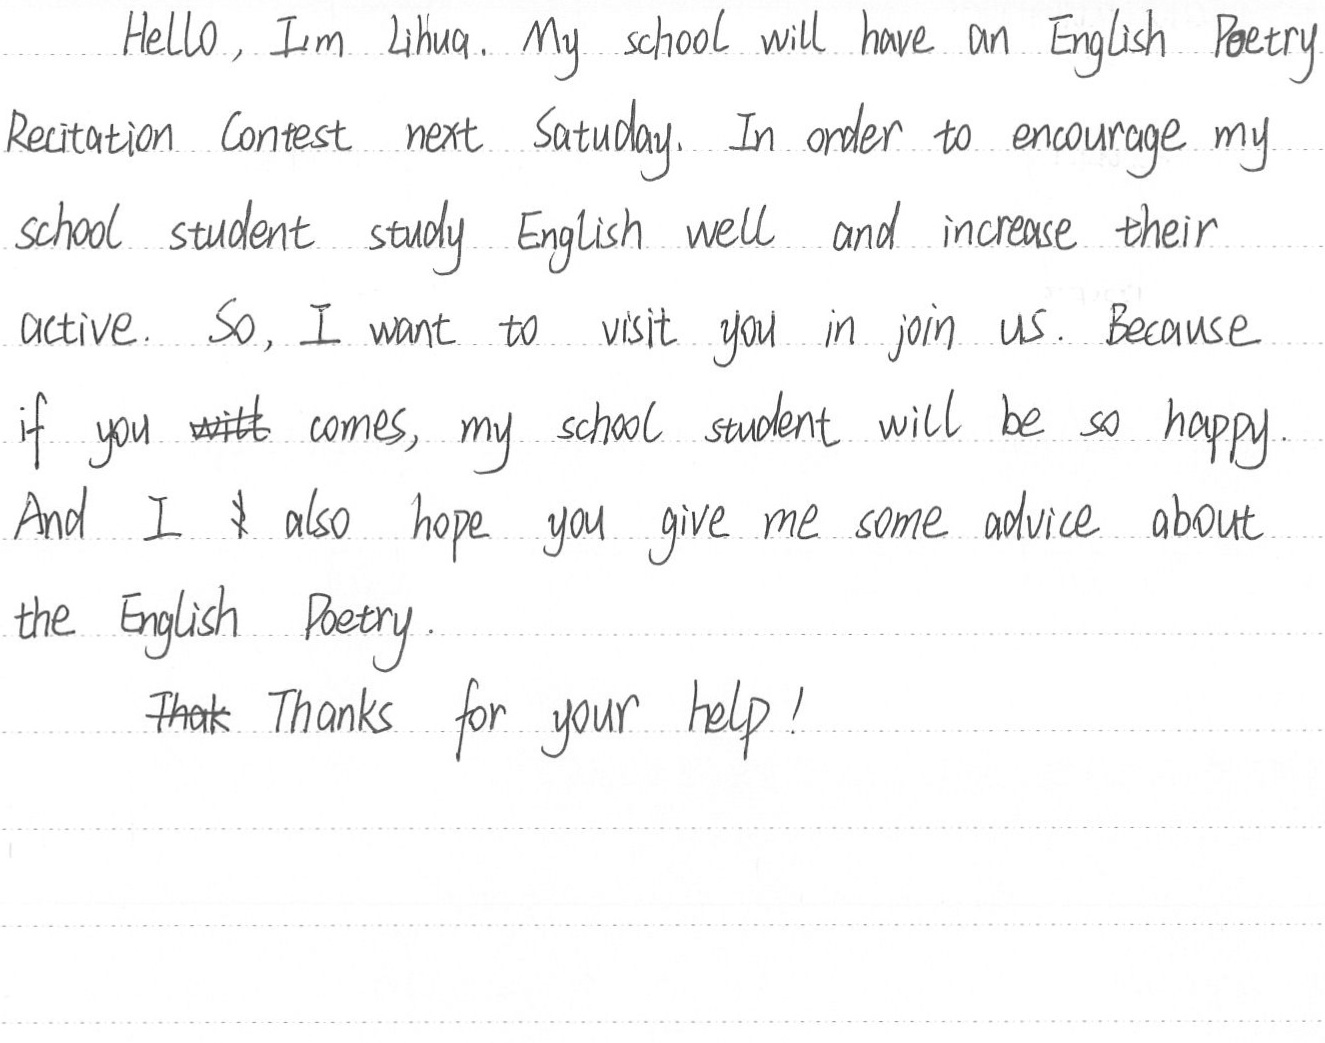 Hello, I'm Lihua. My school will have an English Poetry
Recitation Contest next Satuday. In order to encourage my
school student study English well and increase their
active. So, I want to visit you in join us. Because
if you will comes, my school student will be so happy.
And I also hope you give me some advice about
the English Poetry.
Thak Thanks for your help!